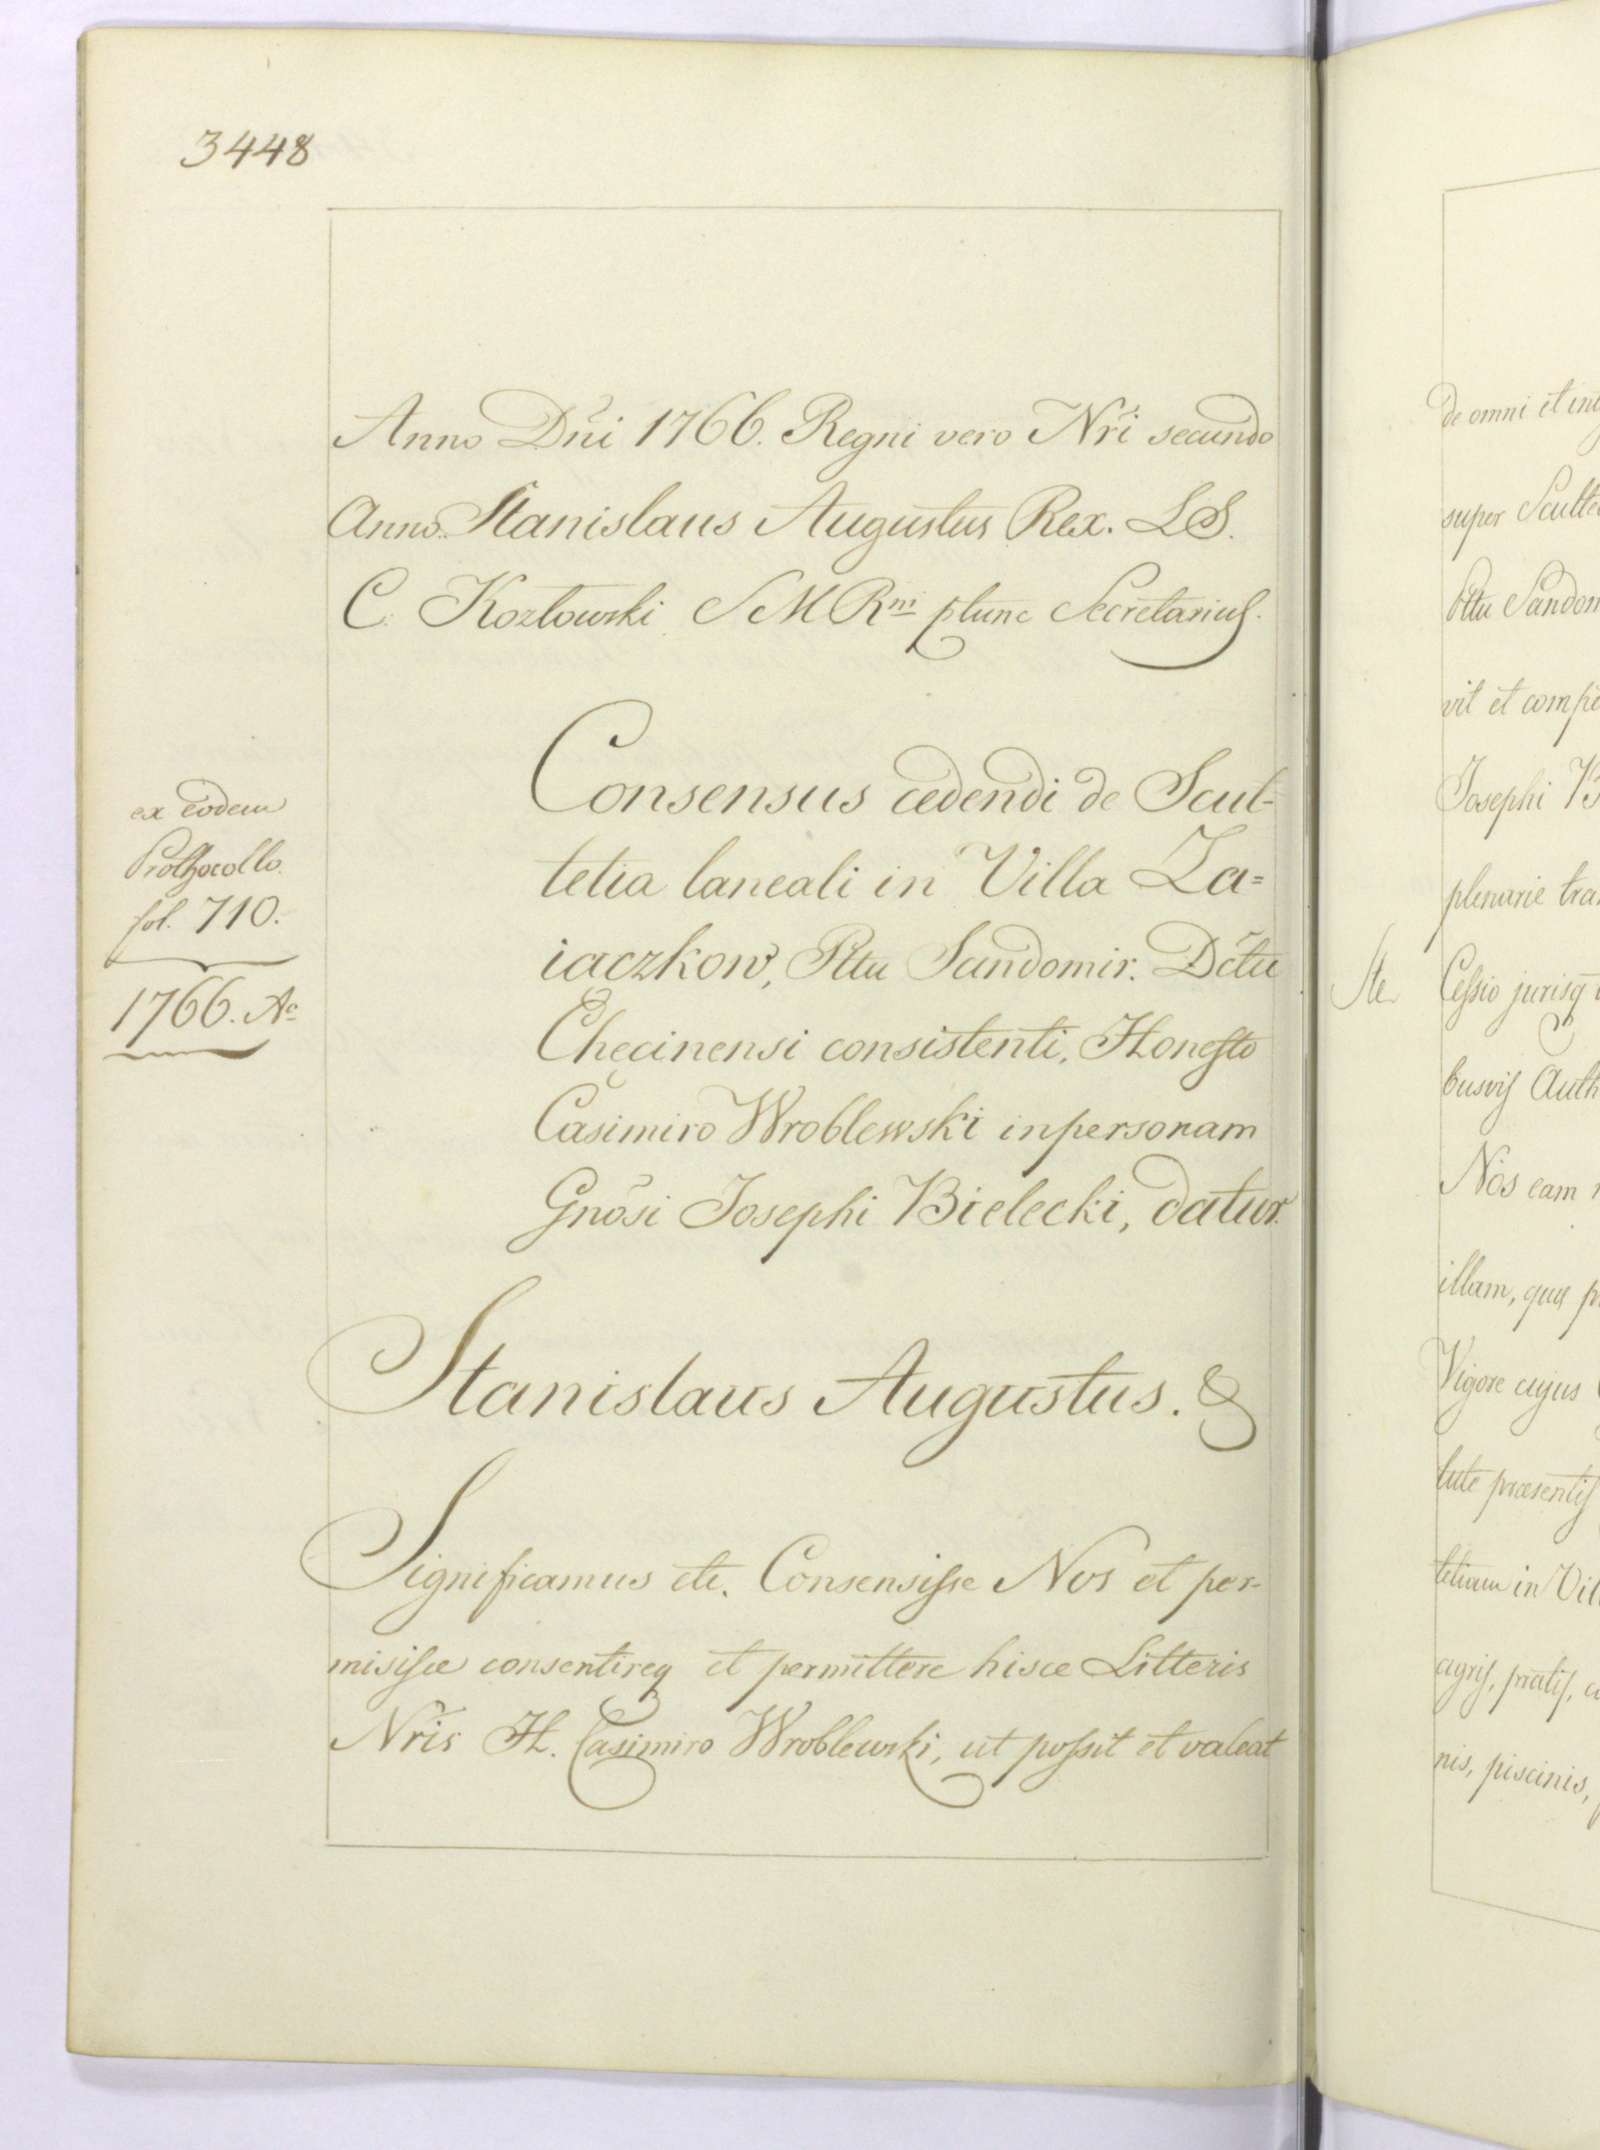 3448
Anno Dñi 1766. Regni vero Nri secundo
Anno. Stanislaus Augustus Rex. LS.
C. Kozłowski S M R ptunc Secretarius.
ex eodem
Prothocollo
fol. 710.
1766. Ao
Consensus cedendi de Scul-
tetia laneali in Villa Za=
iaczkow, Pttu Sandomir. Dctu
Chęcinensi consistenti, Honesto
Casimiro Wroblewski inpersonam
Gnosi Josephi Bielecki, datur.
Stanislaus Augustus. &
Significamus etc. Consensisse Nos et per-
misisse consentireq et permittere hisce Litteris
Nris H. Casimiro Wroblewski, ut possit et valeat
de omni et
super
Pttu
vit et
Josephi
plenarie
Cessio jurisq
busvis
Nos eam
illam, quą
Vigore cujus
tute praesentis
tetiam in
agris, pratis,
nis, piscinis,